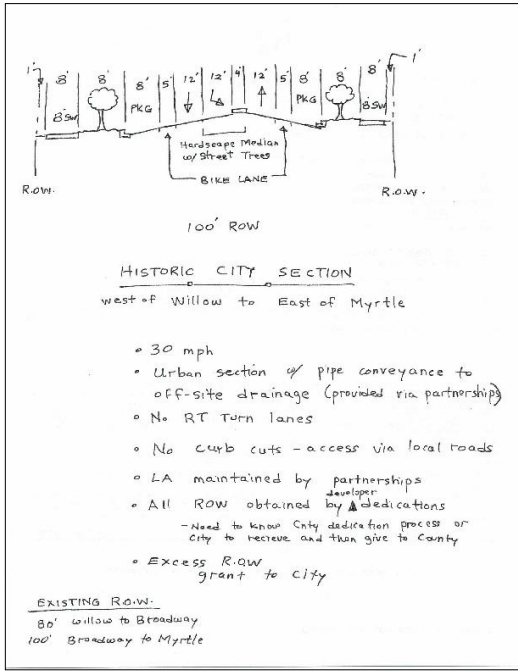 1' 8' 8' 8' 5' 12' 12' 4' 12' 5' 8' 8' 8' 1'
8'SW PKG PKG 8'SW
Hardscape Median
w/ Street Trees
BIKE LANE
R.O.W. R.O.W.
100' ROW
HISTORIC CITY SECTION
west of Willow to East of Myrtle
• 30 mph
• Urban section w/ pipe conveyance to
off-site drainage (provided via partnerships)
• No RT Turn lanes
• No curb cuts - access via local roads
• LA maintained by partnerships
developer
• All ROW obtained by dedications
- Need to know Cnty dedication process or
City to recieve and then give to County
• Excess R.O.W
grant to City
EXISTING R.O.W.
80' Willow to Broadway
100' Broadway to Myrtle